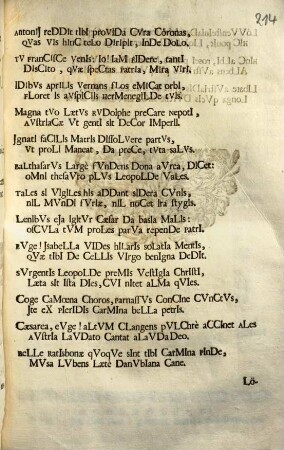 214
AntonI reDDIt tIbI proVIDa CVra Coronas,
qVas VIs hInC teLo DIrIpIt, InDe DoLo.
tV FranCIsCe VenIs: Io! IaM rIDere, tantI
DIsCIto, qVæ speCtas patrIa, MIra VIrI.
IDIbVs aprILIs Vernans fLos eMICat orbI,
fLoret Is aVspICIIs HerMenegILDe tVIs.
Magna tVo LætVs RVDoLphe preCare nepotI,
AVstrIaCæ Vt gentI sIt DeCor IMperII.
IgnatI faCILIs MatrIs DIssoLVere partVs,
Vt proLI Maneat, Da preCe, tVta saLVs.
BaLthasarVs Largè fVnDens Dona aVrea, DICet:
oMnI thesaVro pLVs LeopoLDe VaLes.
TaLes sI VIgILIes hIs aDDant sIDera CVnIs,
nIL MVnDI fVrIæ, nIL noCet Ira stygIs.
LenIbVs eJa IgItVr Cæsar Da basIa MaLIs:
osCVLa tVM proLes parVa repenDe patrI.
EVge! IsabeLLa VIDes hILarIs soLatIa MentIs,
qVæ tIbI De CeLLIs VIrgo benIgna DeDIt.
sVrgentIs LeopoLDe preMIs VestIgIa ChrIstI,
Læta sIt Ista DIes, CVI nItet aLMa qVIes.
Coge CaMœna Choros, parnassVs ConCIne CVnCtVs,
Ite eX pIerIDIs CarMIna beLLa petrIs.
Cæsarea, eVge! aLtVM CLangens pVLChrè aCCInet ALes
AVstrIa LaVDato Cantat aLaVDa Deo.
BeLLe ratIsbonæ qVoqVe sInt tIbI CarMIna pInDe,
MVsa LVbens Lætè DanVbIana Cane.
Lô-